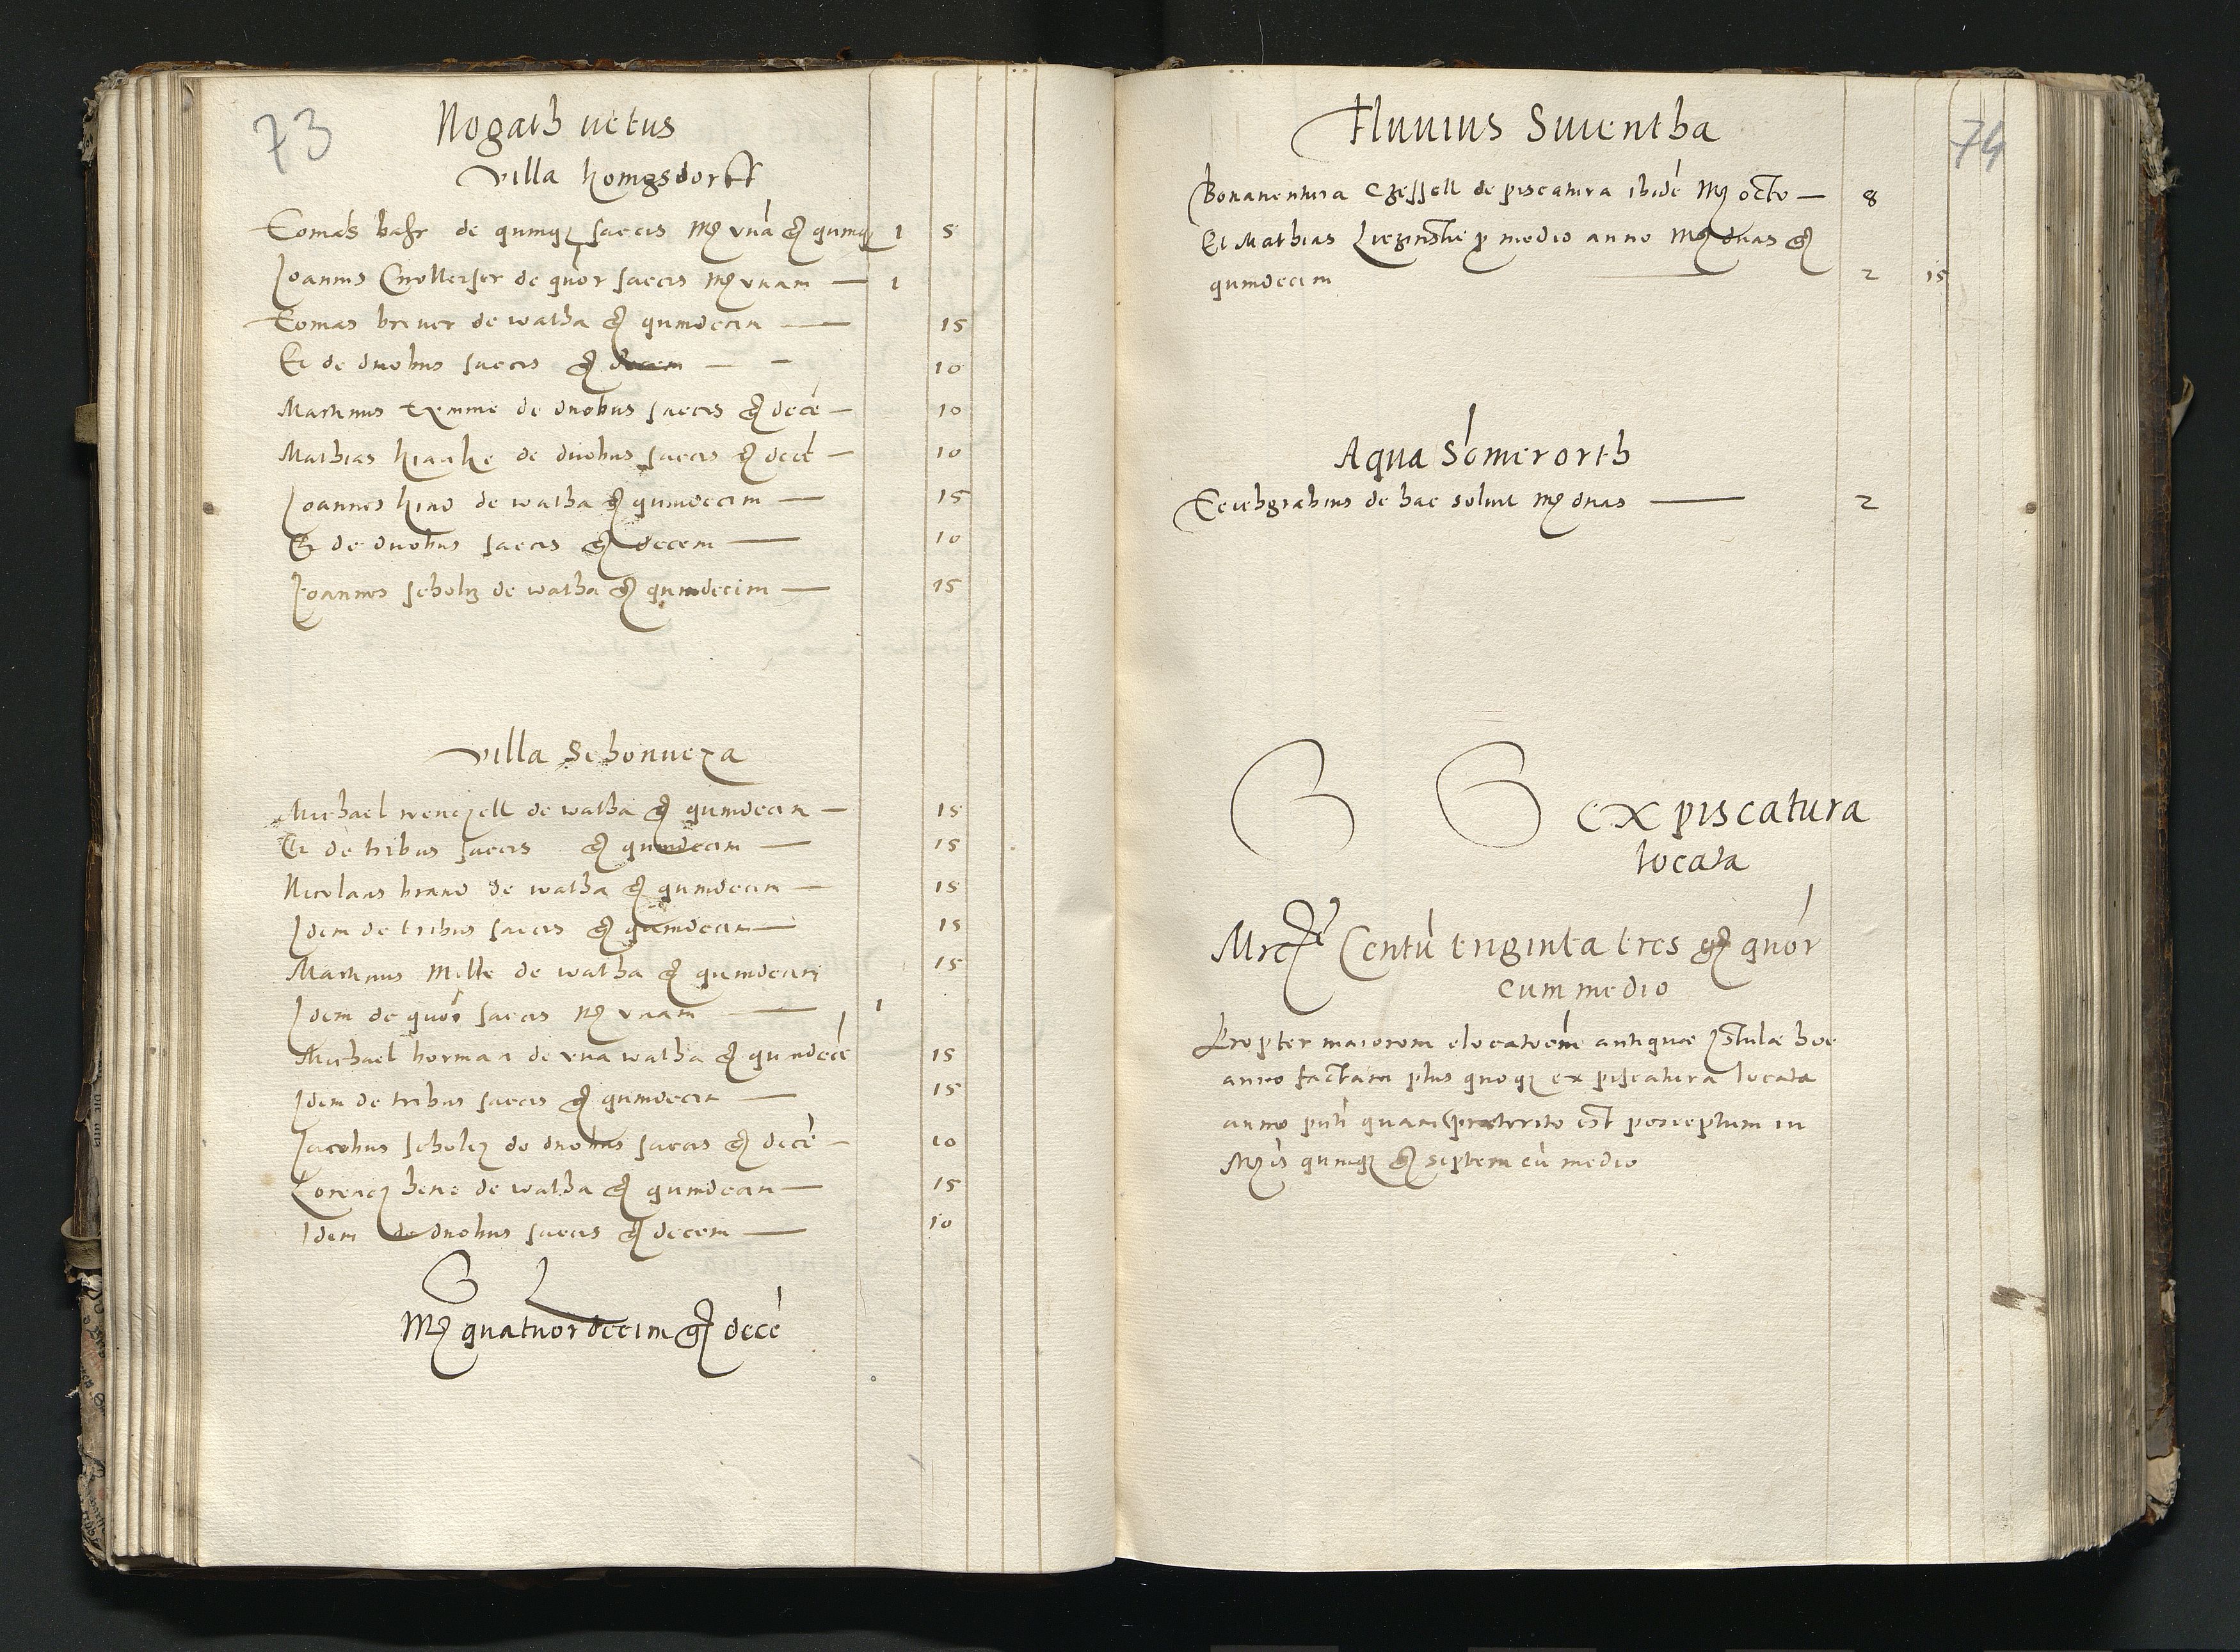 73
Nogath uetus
villa konigsdorff
Tomas bahr de quinq₃ saccis Mr̃ vná gr̃ quinq₃ 1 5
Joannis de quór saccis Mr̃ vnam — 1
Tomas briuer de watha gr̃ quindecim — 15
Et de duobus saccis gr̃ decem — — 10
Martinus de duobus saccis gr̃ decé — 10
Mathias de duobus saccis gr̃ decé — 10
Joannes hind de watha gr̃ quindecim — 15
Et de duobus saccis gr̃ decem — 10
Joannes scholtz de watha gr̃ quindecim — 15
villa Schonueza
Michael wenczell de watha gr̃ quindecim — 15
Et de tribus saccis gr̃ quindecim — 15
Nicolaus brand de watha gr̃ quindecim — 15
Idem de tribus saccis gr̃ quindecim — 15
Martinus Milke de watha gr̃ quindecim 15
Idem de quór saccis Mr̃ vnam — 1
Michael horman de vna watha gr̃ quindecé 15
Idem de tribus saccis gr̃ quindecim — 15
Jacobus scholcz de duobus saccis gr̃ decé — 10
Lorencz hene de watha gr̃ quindecim — 15
Idem de duobus saccis gr̃ decem — 10
Mr̃ quatuordecim gr̃ decé
74
Fluuius Swentha
Bonauentura Czessell de piscatura ibidé Mr̃ octo — 8
Et Mathias p medio anno Mr̃ duas gr̃
quindecim — 2 15
Aqua Sómerorth
de hac soluit Mr̃ duas — 2
ex piscatura
locata
Mrcę Centú triginta tres gr̃ quór
cum medio
Propter maiorem elocatoém antiquae hoc
anno factam plus quoq₃ ex piscatura locata
anno pñti quam praeterito est perceptum in
Mr̃is quinq₃ gr̃ septem cú medio